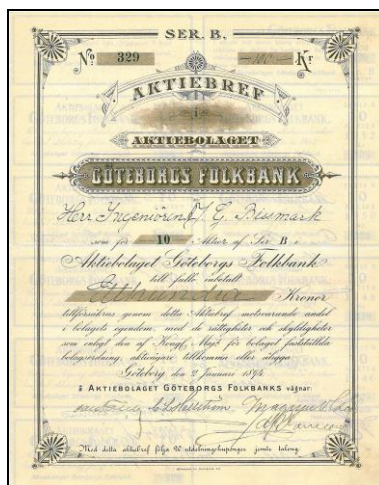 SER. B.
No: 329 —100— Kr
AKTIEBREF
i
AKTIEBOLAGET
GÖTEBORGS FOLKBANK
Herr Ingeniören J. G. Bismark
som för 10 Aktier af Ser. B i
Aktiebolaget Göteborgs Folkbank
till fullo inbetalt
Etthundra Kronor
tillförsäkras genom detta Aktiebref motsvarande andel
i bolagets egendom, med de rättigheter och skyldigheter
som enligt den af Kongl. Maj:t för bolaget fastställda
bolagsordning, aktieägare tillkomma eller åligga.
Göteborg den 2 Januari 1894
å AKTIEBOLAGET GÖTEBORGS FOLKBANKS vägnar:
Med detta aktiebref följa 20 utdelningskuponger jemte talong.